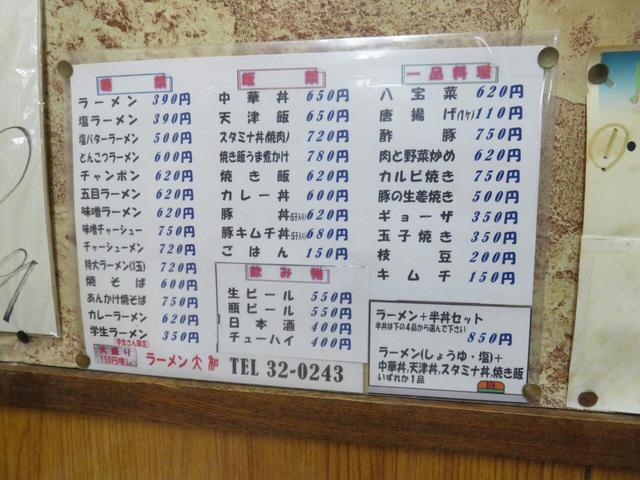 麺類
ラーメン 390円
塩ラーメン 390円
塩バターラーメン 500円
とんこつラーメン 600円
チャンポン 620円
五目ラーメン 620円
味噌ラーメン 620円
味噌チャーシュー 750円
チャーシューメン 720円
特大ラーメン(3玉) 720円
焼そば 600円
あんかけ焼そば 750円
カレーラーメン 620円
学生ラーメン 350円
(学生さん限定)
大盛り
150円増し
飯類
中華丼 650円
天津飯 650円
スタミナ丼(焼肉) 720円
焼き飯うま煮かけ 780円
焼き飯 620円
カレー丼 600円
豚丼(玉子入り) 620円
豚キムチ丼(玉子入り) 680円
ごはん 150円
飲み物
生ビール 550円
瓶ビール 550円
日本酒 400円
チューハイ 400円
ラーメン大和 TEL 32-0243
一品料理
八宝菜 620円
唐揚げ(1ケ) 110円
酢豚 750円
肉と野菜炒め 620円
カルビ焼き 750円
豚の生姜焼き 500円
ギョーザ 350円
玉子焼き 350円
枝豆 200円
キムチ 150円
ラーメン+半丼セット
半丼は下の4品から選んで下さい
850円
ラーメン(しょうゆ・塩)+
中華丼,天津丼,スタミナ丼,焼き飯
いずれか1品